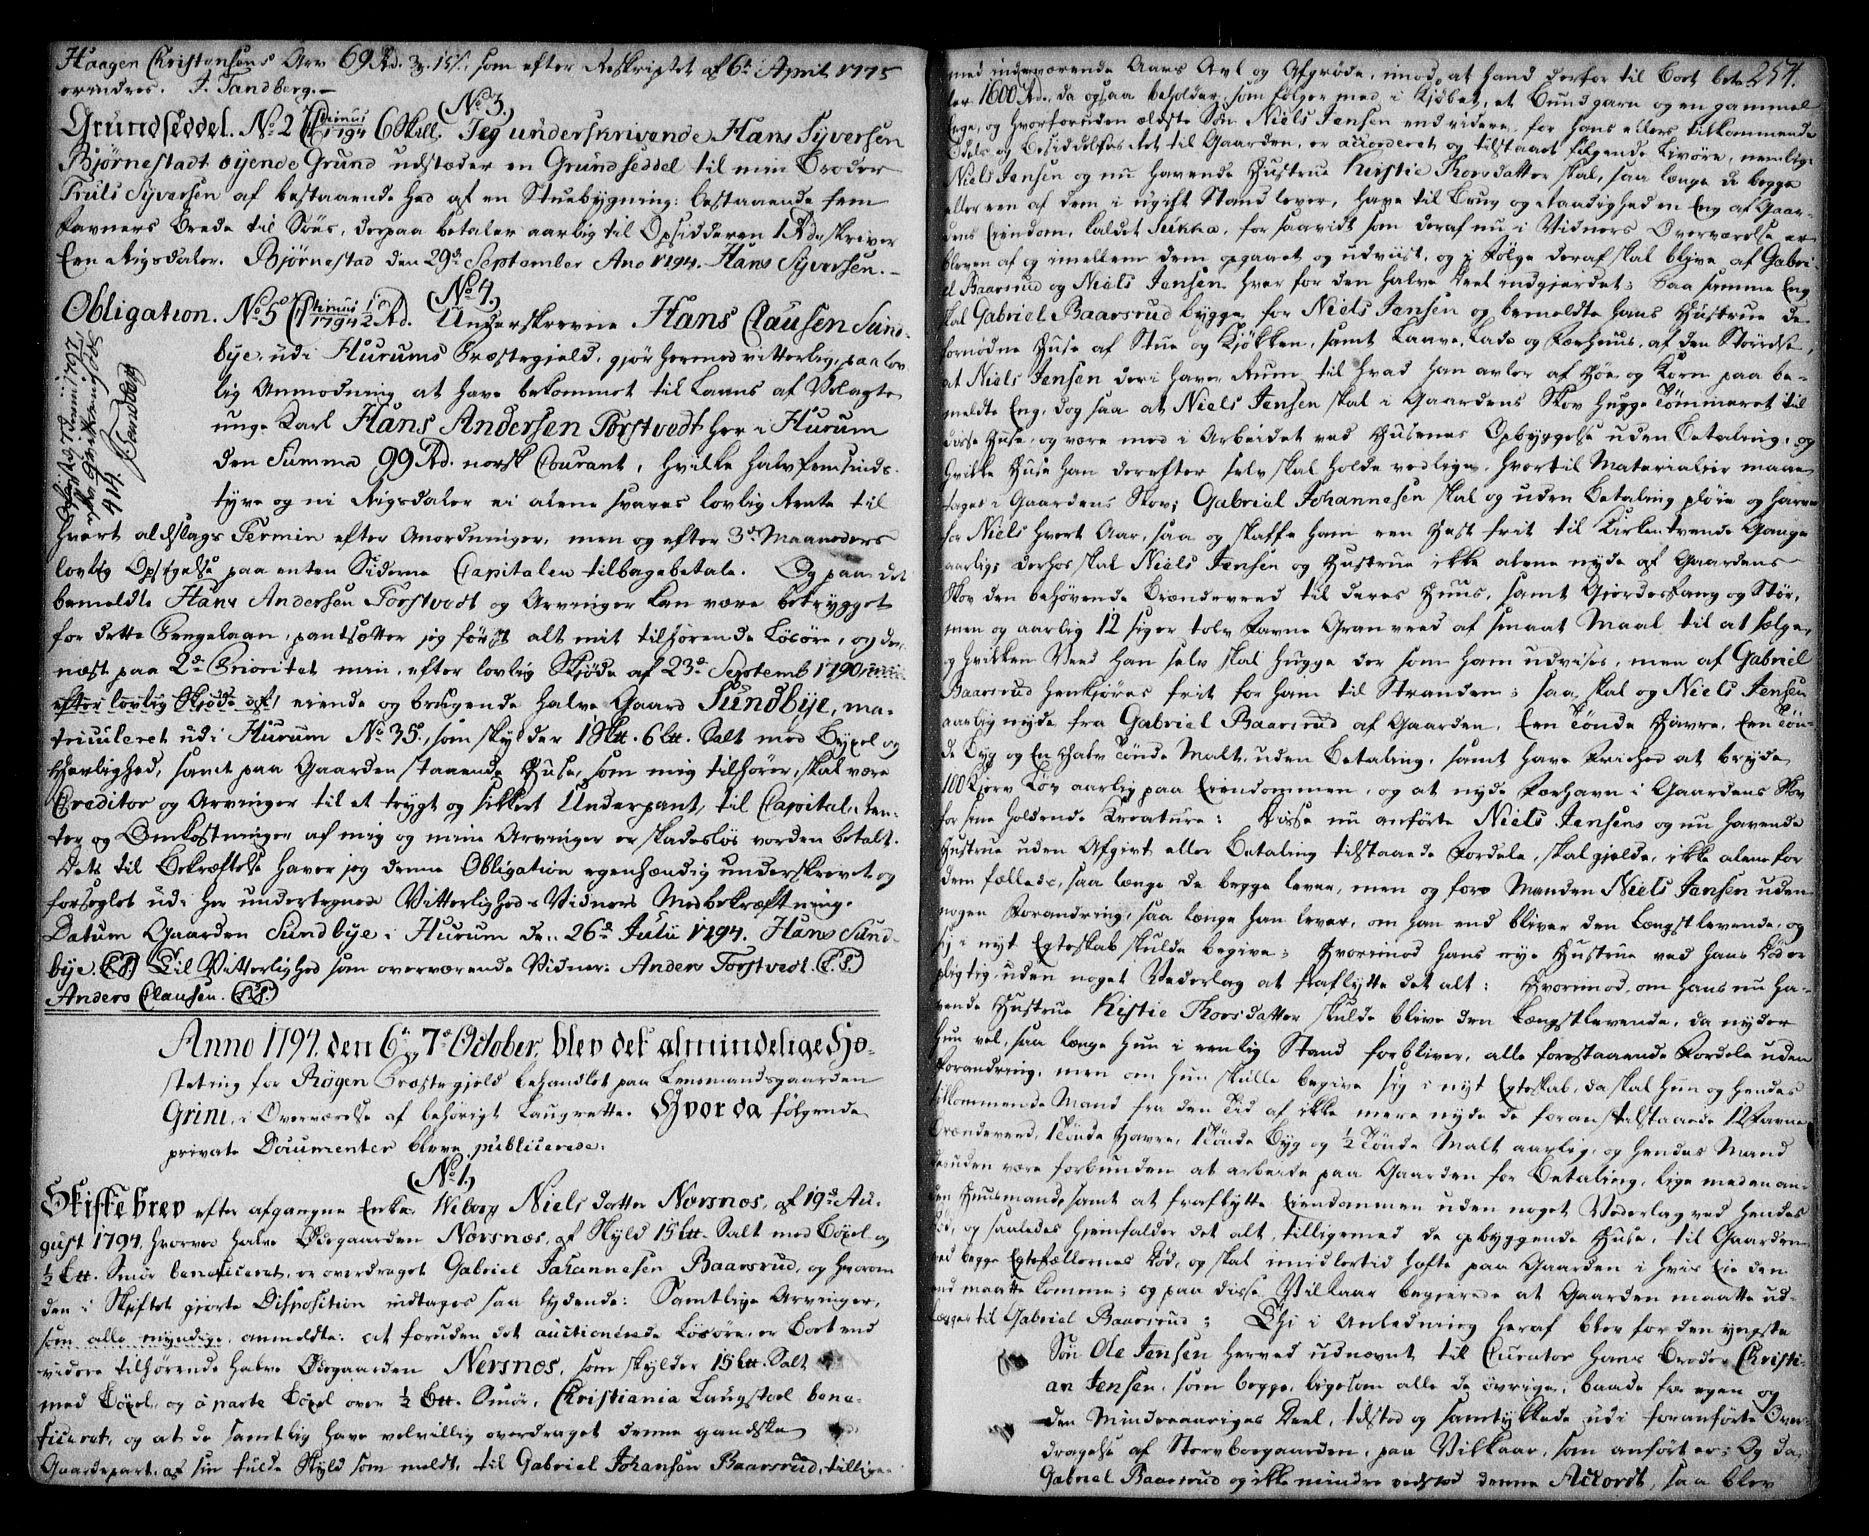 Haagen Christensens Arv 69 Rd. 3 . 15 s. som efter Reskriptet af 6te April 1775
erindres. J. Tandberg.
(No. 3.)
Grundseddel. No. 2 1794 6 Skill. Jeg underskrivende Hans Syversen
Bjørnestadt eyende Grund udstæder en Grundseddel til min Broder
Truls Syversen af bestaaende Hed af en Stuebygning: bestaaende fem
Favners Brede til Søns, derpaa betaler aarlig til Opsidderen 1 Rd. skriver
Een Rigsdaler. Bjørnestad den 29de September Ano 1794. Hans Syversen.
(No. 4.)
Obligation. No. 5 1794 1/2 Rd. Underskrevne Hans Clausen Sund-
bye, udi Hurums Præstegjeld, gjør hermed vitterlig, paa lov-
lig Anmodning at have bekommet til Laans af Velagte
unge Karl Hans Andersen Torstvedt her i Hurum
den Summa 99 Rd. norsk Courant, hvilke halvfemsinds-
tyve og ni Rigsdaler ei alene svares lovlig Rente til
hvert aldslags Termin efter Anordninger, men og efter 3de Maaneders
lovlig Opsigelse paa enten Siderne Capitalen tilbagebetale. Og paa det
bemeldte Hans Andersen Torstvedt og Arvinger kan være betrygget
for dette Pengelaan, pantsætter jeg først alt mit tilhørende Løsøre, og der-
næst paa 2de Prioritet min, efter lovlig Skjøde af 23de Septemb 1790
efter lovlig Skjøde af, eiende og brugende halve Gaard Sundbye, ma-
triculeret udi Hurum No. 35, som skylder 1 Skt. 6 Ltt. Salt med Bygsel og
Herlighed, samt paa Gaarden staaende Huse, som mig tilhører, skal være
Creditor og Arvinger til et trygt og sikkert Underpant, til Capital, Ren-
ter og Omkostninger af mig og mine Arvinger er skadesløs vorden betalt.
Dets til Bekræftelse haver jeg denne Obligation egenhændig underskrevet og
forseglet udi her undertegnede Vitterligheds Vidners Medbekræftning.
Datum Gaarden Sundbye i Hurum den 26de Julii 1794. Hans Sund-
bye. (L.S.) Til Vitterlighed som overværende Vidner: Anders Torstvedt. (L.S.)
Anders Clausen. (L.S.)
Anno 1794. den 6te og 7de October, blev det almindelige Hø-
steting for Røgen Præstegjeld behandlet paa Lensmandsgaarden
Grini, i Overværelse af behørigt Laugrette. Hvor da følgende
private Documenter bleve publicerede:
(No. 1.)
Skiftebrev efter afgangne Enke Weborg Niels datter Nersnes, af 19de Au-
gust 1794, hvorved halve Ødegaarden Nersnes, af Skyld 15 Ltt. Salt med Bygsel og
1/2 Ltt. Smør beneficeret, er overdraget Gabriel Johannesen Baarsrud, og hvorom
den i Skiftet gjorte Disposition indtages saa lydende: Samtlige Arvinger,
som alle myndige, anmeldte: at foruden det auctionerede Løsøre er Boet end
videre tilhørende halve Ødegaarden Nersnes, som skylder 15 Ltt. Salt
med Bøxel, og à parte Bøxel over 1/2 Ltt. Smør, Christiania Laugstoel bene-
ficeret, og at de samtlig have velvillig overdraget denne gandske
Gaardepart, af sin fulde Skyld som meldt, til Gabriel Johansen Baarsrud, tillige-
254.
med indeværende Aars Avl og Afgrøde, imod at hand derfor til Boet beta-
ler 1600 Rd., da ogsaa beholder, som følger med i Kjøbet, et Bundgarn og en gammel
, og hvorforuden ældste Søn Niels Jensen end videre, for hans ellers tilkommende
Odels og Besiddelses Ret til Gaarden, er accorderet og tilstaaet følgende Livøre, nemlig:
Niels Jensen og nu havende Hustrue Kirstie Thorsdatter skal, saa længe de begge
eller een af dem i ugift Stand lever, have til Brug og staadighed en Eng af Gaar-
dens Eiendom, kaldet Sukka, for saavidt som deraf nu i Vidners Overværelse er
bleven af og imellem dem opgaaet og udviist, og i Følge deraf skal blive af Gabri-
el Baarsrud og Niels Jensen hver for den halve Deel indgjerdet; Paa samme Eng
skal Gabriel Baarsrud bygge for Niels Jensen og bemeldte hans Hustrue de
fornødne Huse af Stue og Kjøkken, samt Laave, Lade og Fæehuus, af den Størrelse,
at Niels Jensen deri haver Rum til hvad han avler af Høe og Korn paa be-
meldte Eng, dog saa at Niels Jensen skal i Gaardens Skov hugge Tømmeret til
disse Huse, og være med i Arbeidet ved Husenes Opbyggelse uden Betaling, og
hvilke Huse han derefter selv skal holde vedlige, hvortil Materialier maae
tages i Gaardens Skov; Gabriel Johannesen skal og uden Betaling pløie og harve
for Niels hvert Aar, saa og skaffe ham een Hest frit til Kirken trende Gange
aarlig; derhos skal Niels Jensen og Hustrue ikke alene nyde af Gaardens
Skov den behøvende Brændeved til deres Huus, samt Gjerdesfang og Stør,
men og aarlig 12 siger tolv Favne Granved af smaat Maal til at sælge,
og hvilken Veed han selv skal hugge der som ham udvises, men af Gabriel
Baarsrud henkjøres frit for ham til Stranden; saa skal og Niels Jensen
aarlig nyde fra Gabriel Baarsrud af Gaarden, Een Tønde Havre, Een Tøn-
de Byg og En Halv Tønde Malt, uden Betaling, samt have Friehed at bryde
100 Kjerv Løv aarlig paa Eiendommen, og at nyde Fæehavn i Gaardens Skov
for sine holdende Kreature: Disse nu anførte Niels Jensens og nu havende
Hustrue uden Afgivt eller Betaling tilstaaede Fordele, skal gjelde, ikke alene for
dem fælleds, saa længe de begge lever, men og for Manden Niels Jensen uden
nogen Forandring, saa længe han lever, om han end bliver den Længstlevende, og
sig i nyt Egteskab skulde begive; Hvorimod hans nye Hustrue ved hans Død er
pligtig uden noget Vederlag at fraflytte det alt: Hvorimod, om hans nu ha-
vende Hustrue Kistie Thorsdatter skulde blive den Længstlevende, da nyder
hun vel, saa længe hun i eenlig Stand forbliver, alle forestaaende Fordele uden
Forandring, men om hun skulle begive sig i nyt Egteskab, da skal hun og hendes
tilkommende Mand fra den Tid af ikke mere nyde de foran tilstaaede 12 Favne
Brændeved, 1 Tønde Havre, 1 Tønde Byg og 1/2 Tønde Malt aarlig, og hendes Mand
desuden være forbunden at arbeide paa Gaarden for Betaling, lige med en an-
den Huusmand, samt at fraflytte Eiendommen uden noget Vederlag ved hendes
Død, og saaledes hjemfalder det alt, tilligemed de opbyggende Huse, til Gaarden
ved begge Egtefællernes Død, og skal imidlertid hefte paa Gaarden i hvis Eie den
end maatte komme; og paa disse Vilkaar begjerede at Gaarden maatte ud-
lægges til Gabriel Baarsrud; Thi i Anledning heraf blev for den yngste
Søn Ole Jensen herved udnævnt til Curator hans Broder Christi-
an Jensen, som begge, ligesom alle de øvrige, baade for egen og
den Mindreaariges Deel, tilstod og samtykkede udi foranførte Over-
dragelse af Stervboegaarden, paa Vilkaar, som anført er; Og da
Gabriel Baarsrud og ikke mindre vedstod denne Accordt, saa blev